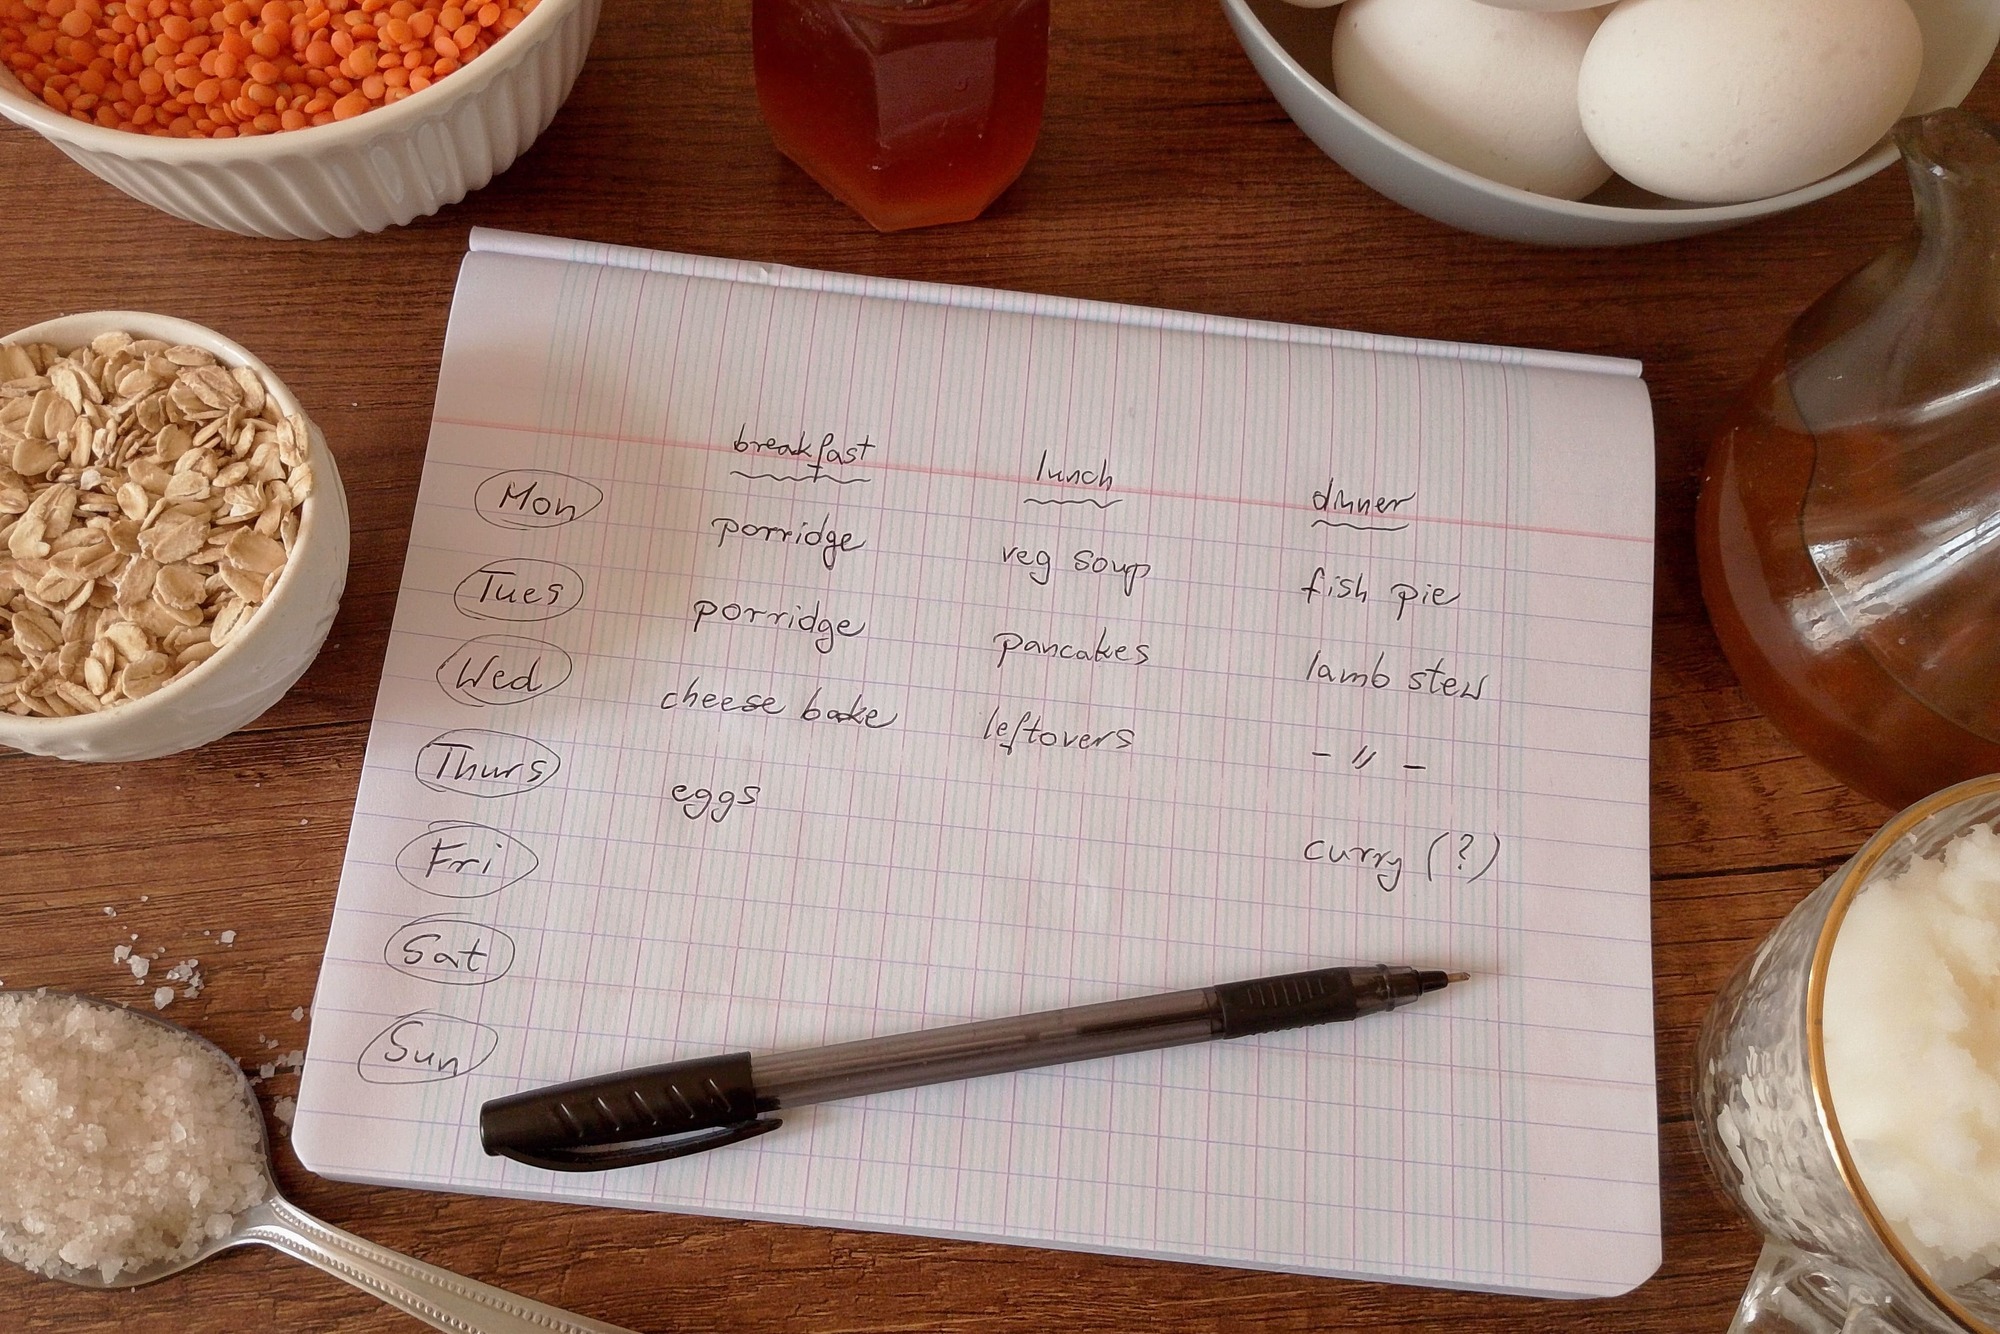 breakfast lunch dinner
Mon porridge veg soup fish pie
Tues porridge pancakes lamb stew
Wed cheese bake leftovers -〃 -
Thurs eggs curry (?)
Fri
Sat
Sun